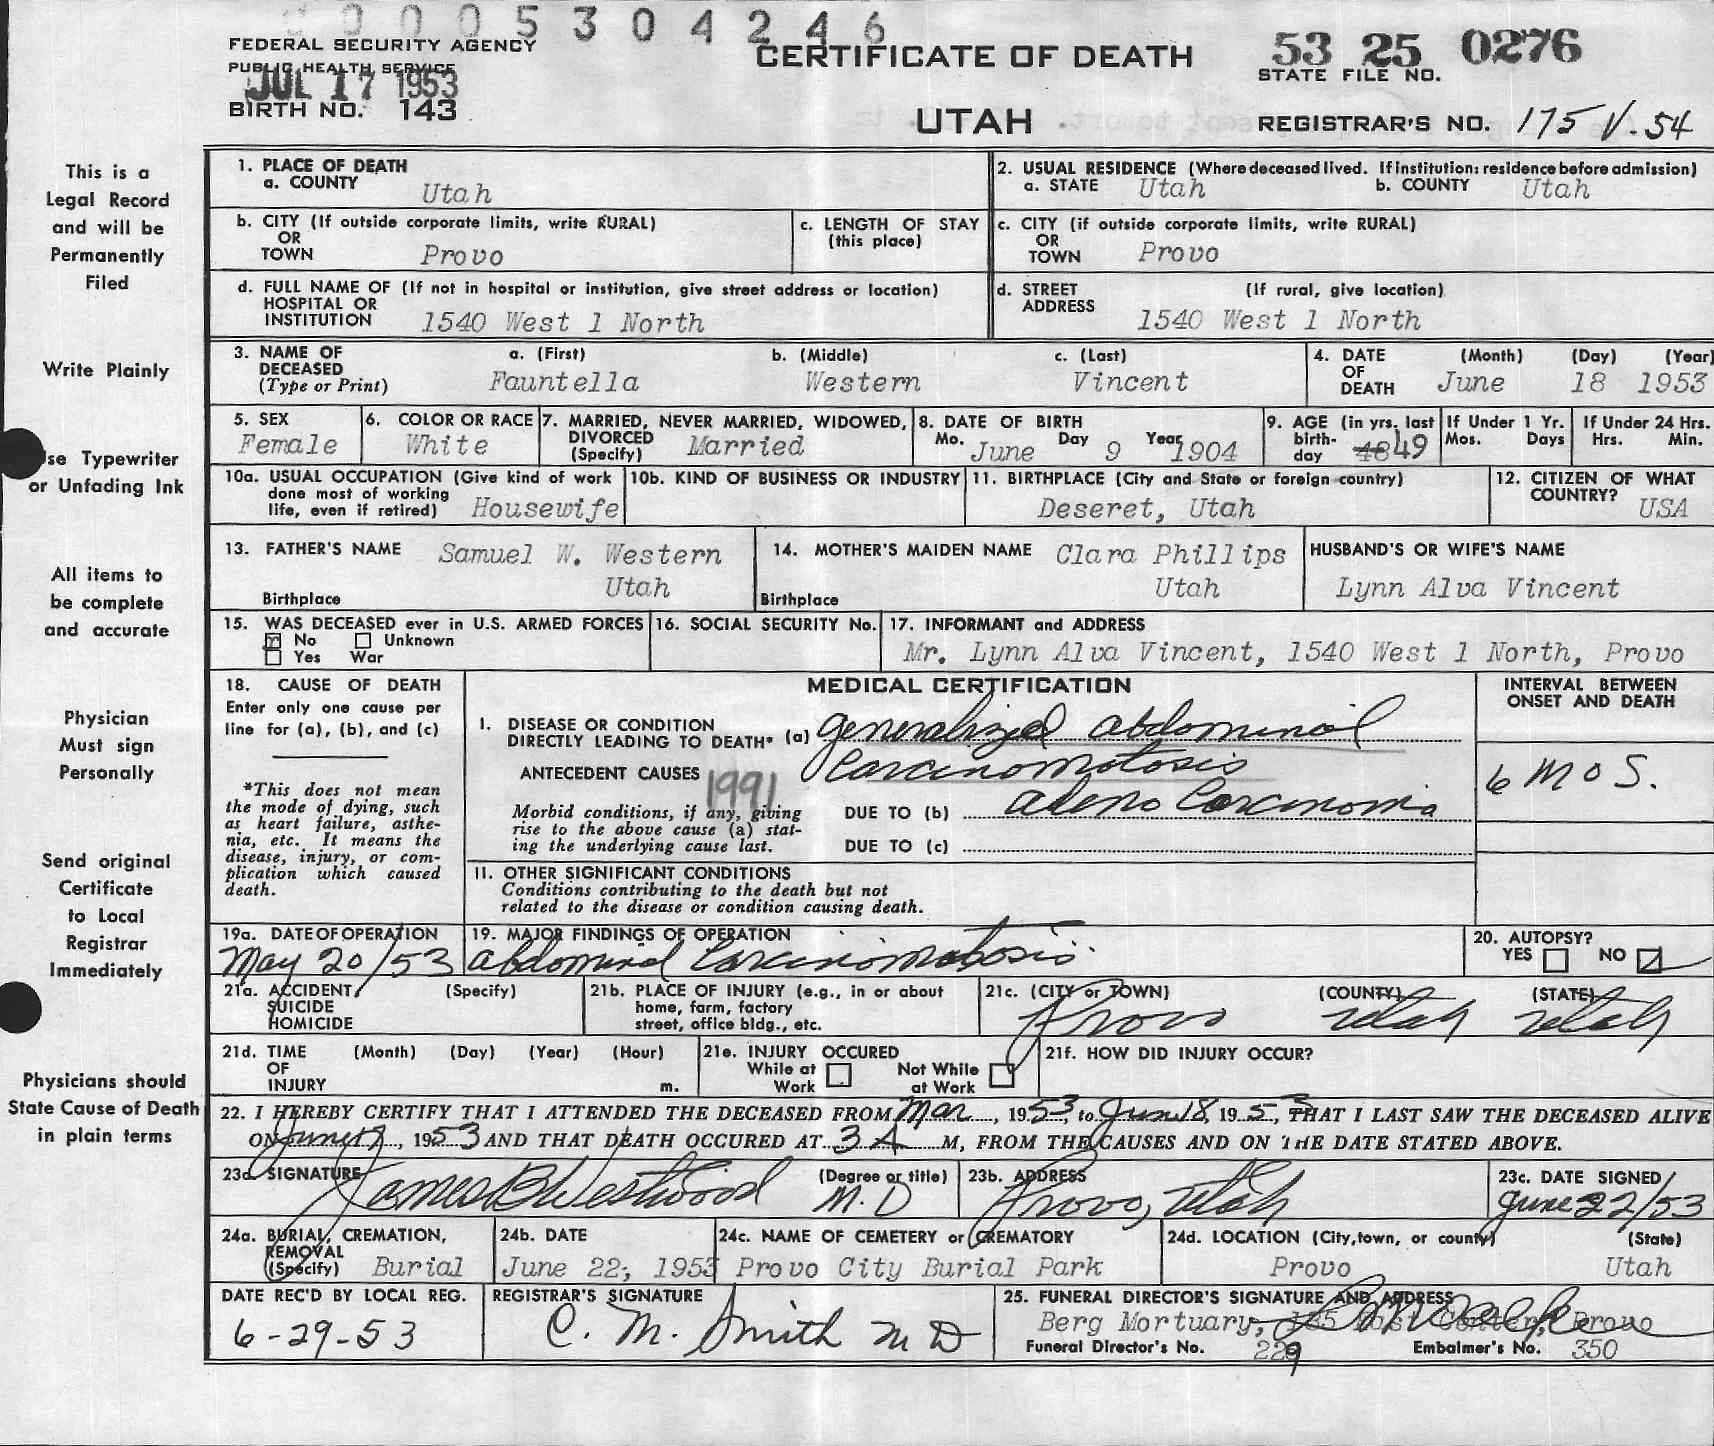 0005304246
FEDERAL SECURITY AGENCY
PUBLIC HEALTH SERVICE
JUL 17 1953
BIRTH NO. 143
CERTIFICATE OF DEATH
UTAH
53 25 0276
STATE FILE NO.
REGISTRAR'S NO. 175 V-54
This is a
Legal Record
and will be
Permanently
Filed
Write Plainly
se Typewriter
or Unfading Ink
All items to
be complete
and accurate
Physician
Must sign
Personally
Send original
Certificate
to Local
Registrar
Immediately
Physicians should
State Cause of Death
in plain terms
1. PLACE OF DEATH
a. COUNTY Utah
2. USUAL RESIDENCE (Where deceased lived. If institution: residence before admission)
a. STATE Utah b. COUNTY Utah
b. CITY (If outside corporate limits, write RURAL)
OR
TOWN Provo
c. LENGTH OF STAY
(this place)
c. CITY (if outside corporate limits, write RURAL)
OR
TOWN Provo
d. FULL NAME OF (If not in hospital or institution, give street address or location)
HOSPITAL OR
INSTITUTION 1540 West 1 North
d. STREET (If rural, give location)
ADDRESS
1540 West 1 North
3. NAME OF DECEASED (Type or Print)
a. (First) b. (Middle) c. (Last)
Fauntella Western Vincent
4. DATE OF DEATH (Month) (Day) (Year)
June 18 1953
5. SEX
Female
6. COLOR OR RACE
White
7. MARRIED, NEVER MARRIED, WIDOWED,
DIVORCED (Specify) Married
8. DATE OF BIRTH
Mo. June Day 9 Year 1904
9. AGE (in yrs. last birth-day 48 49
If Under 1 Yr.
Mos. Days
If Under 24 Hrs.
Hrs. Min.
10a. USUAL OCCUPATION (Give kind of work
done most of working
life, even if retired) Housewife
10b. KIND OF BUSINESS OR INDUSTRY
11. BIRTHPLACE (City and State or foreign country)
Deseret, Utah
12. CITIZEN OF WHAT
COUNTRY?
USA
13. FATHER'S NAME Samuel W. Western
Birthplace Utah
14. MOTHER'S MAIDEN NAME Clara Phillips
Birthplace Utah
HUSBAND'S OR WIFE'S NAME
Lynn Alva Vincent
15. WAS DECEASED ever in U.S. ARMED FORCES
No Unknown
Yes War
16. SOCIAL SECURITY No.
17. INFORMANT and ADDRESS
Mr. Lynn Alva Vincent, 1540 West 1 North, Provo
18. CAUSE OF DEATH
Enter only one cause per
line for (a), (b), and (c)
*This does not mean
the mode of dying, such
as heart failure, asthe-
nia, etc. It means the
disease, injury, or com-
plication which caused
death.
MEDICAL CERTIFICATION
INTERVAL BETWEEN
ONSET AND DEATH
I. DISEASE OR CONDITION
DIRECTLY LEADING TO DEATH* (a) generalized abdominal
ANTECEDENT CAUSES Carcinomatosis
1991
6 mos.
Morbid conditions, if any, giving
rise to the above cause (a) stat-
ing the underlying cause last.
DUE TO (b) adeno Carcinoma
DUE TO (c)
11. OTHER SIGNIFICANT CONDITIONS
Conditions contributing to the death but not
related to the disease or condition causing death.
19a. DATE OF OPERATION
May 20/53
19. MAJOR FINDINGS OF OPERATION
abdominal Carcinomatosis
20. AUTOPSY?
YES NO
21a. ACCIDENT, (Specify)
SUICIDE
HOMICIDE
21b. PLACE OF INJURY (e.g., in or about
home, farm, factory
street, office bldg., etc.
21c. (CITY or TOWN) (COUNTY) (STATE)
Provo Utah Utah
21d. TIME (Month) (Day) (Year) (Hour)
OF
INJURY m.
21e. INJURY OCCURED
While at Work Not While at Work
21f. HOW DID INJURY OCCUR?
22. I HEREBY CERTIFY THAT I ATTENDED THE DECEASED FROM Mar, 1953, to June 18, 1953, THAT I LAST SAW THE DECEASED ALIVE
ON June 17, 1953 AND THAT DEATH OCCURED AT 3 A M, FROM THE CAUSES AND ON THE DATE STATED ABOVE.
23a. SIGNATURE (Degree or title)
James B Westwood M.D
23b. ADDRESS
Provo, Utah
23c. DATE SIGNED
June 22/53
24a. BURIAL, CREMATION,
REMOVAL
(Specify) Burial
24b. DATE
June 22, 1953
24c. NAME OF CEMETERY or CREMATORY
Provo City Burial Park
24d. LOCATION (City, town, or county) (State)
Provo Utah
DATE REC'D BY LOCAL REG.
6-29-53
REGISTRAR'S SIGNATURE
C. M. Smith MD
25. FUNERAL DIRECTOR'S SIGNATURE AND ADDRESS
Berg Mortuary, 185 East Center, Provo
Funeral Director's No. 229 Embalmer's No. 350